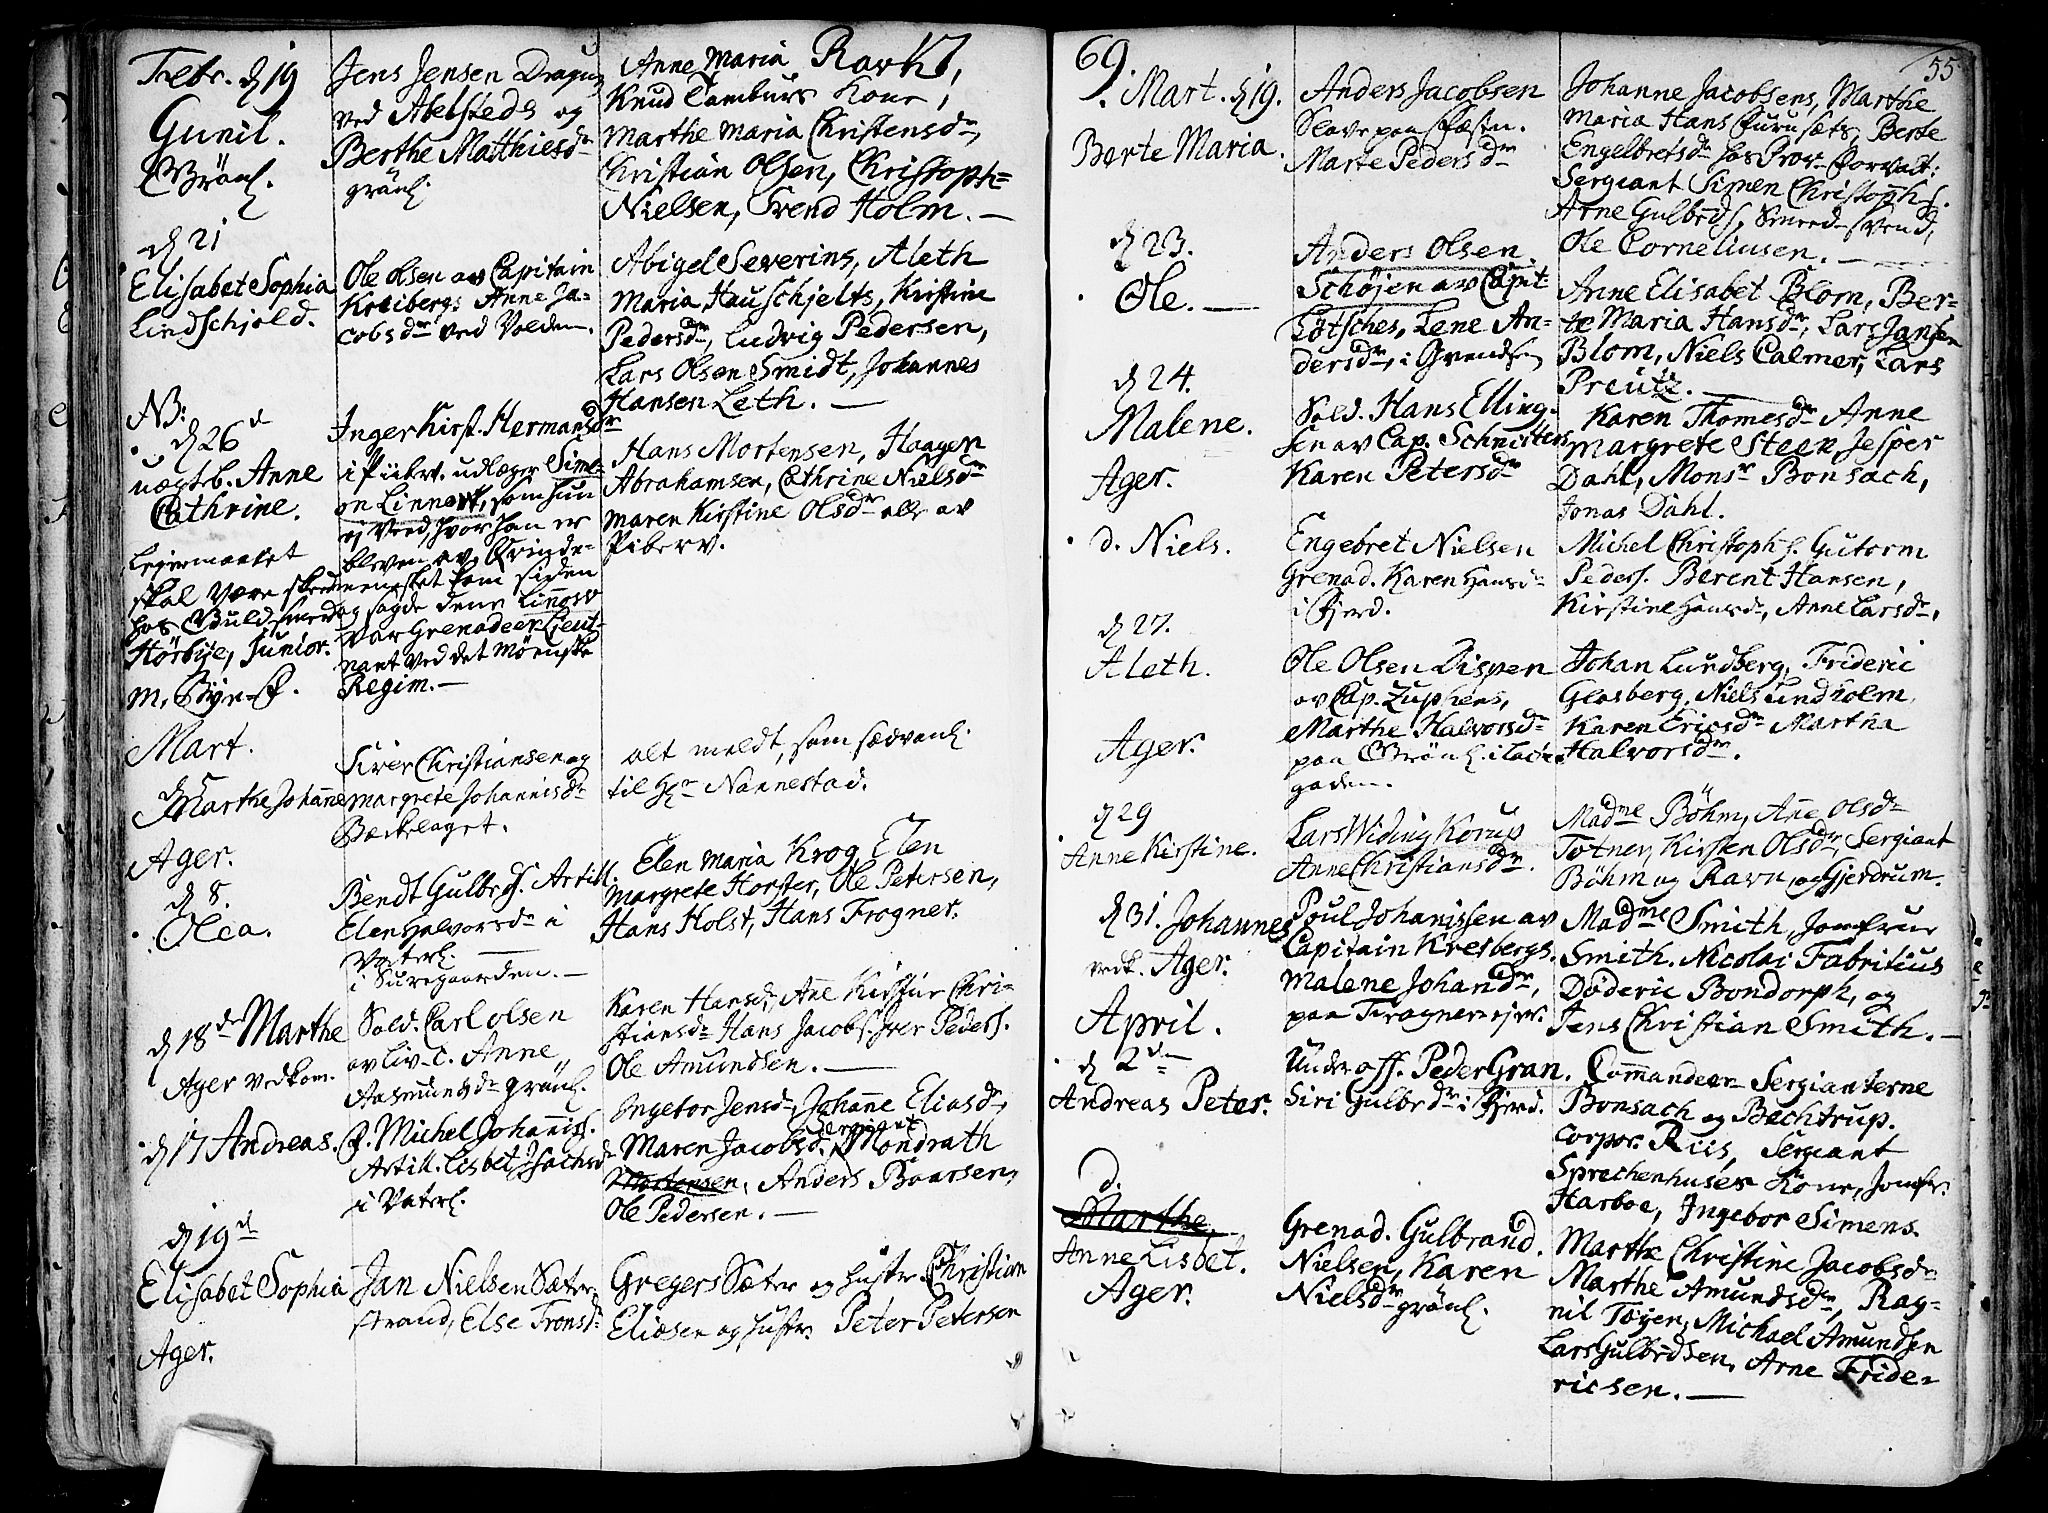 Febr. d 19
Gunil.
Grönl.
Jens Jensen Dragun
ved Abelsteds og
Berthe Matthiesdr
grönl.
Anne Maria Ravn,
Knud Tamburs Kone,
Marthe Maria Christensdr,
Christian Olsen, Christoph=
Nielsen, Svend Holm. —
d 21
Elisabet Sophia
Lindschjold.
Ole Olsen av Capitain
Kreibergs Anne Ja-
cobsdr ved Volden.
Abigel Severins, Aleth
Maria Hauschjelts, Kirstine
Pedersdr, Ludvig Pedersen,
Lars Olsen Smidt, Johannes
Hansen Leth. —
NB:
d 26
uægteb. Anne
Cathrine.
Leiermaalet
skal være skeed
hos Guldsmed
Hörbye, Junior.
Inger Kirst. Hermansdr
i Piberv. udlægger Sime-
on Linnow, som hun
ej veed, hvor han er
bleven av. Qvinde-
mennesket kom siden
og sagde denne Linnow
var Grenadeer Lieut-
nant ved det Mönske
Regim. —
Hans Mortensen, Haagen
Abrahamsen, Cathrine Nielsdr
Maren Kirstine Olsdr alle av
Piberv.
Mart.
Marthe Johanne
Ager.
Siver Christiansen og
Margrete Johannisdr
Bækkelaget.
alt meldt, som sædvanl.
til Hr Nannestad.
d 8.
Olea.
Bendt Gulbrds. Artill.
Elen Halvorsdr i
Vaterl. —
i Suregaarden. —
Elen Maria Krog, Elen
Margrete Horster, Ole Petersen,
Hans Holst, Hans Frogner.
d 18de Marthe
Ager vedkom.
Sold. Carl Olsen
av Liv-C. Anne
Aasmundsdr grönl.
Karen Hansdr, Anne Kirstine Chri-
stiansdr Hans Jacobs. Iver Peders.
Ole Amundsen. —
d 17 Andreas.
Michel Johannis.
Artill. Lisbet Isachsdr
i Vaterl.
Ingebor Jensdr, Johanne Eliasdr,
Sergeant
Maren Jacobsdr, Mondrath
Mortensen, Anders Baarsen,
Ole Pedersen. —
d 19
Elisabet Sophia
Ager.
Jan Nielsen Sæter
strand, Else Tronsdr
Gregers Sæter og Hustr. Christian
Eliesen og Hustr. Peter Petersen
69.
55
Mart. d 19.
Berte Maria.
Anders Jacobsen
Slave paa Fæstn.
Marte Pedersdr
Johanne Jacobsens, Marthe
Maria Hans Furusæts, Berte
Engelbretsdr hos Prov. Forvalt:
Sergiant Simen Christophs.
Arne Gulbrds, Smeed-svend,
Ole Corneliusen. —
d 23.
Ole. —
Anders Olsen
Schöjen av Capit
Lötsches, Lene An-
dersdr, i Grendsen
Anne Elisabet Blom, Ber-
te Maria Hansdr, Lars Jansen
Blom, Niels Calmer, Lars
Preutz. —
d 24.
Malene.
Ager.
Sold. Hans Elling-
sen av Cap. Schnitlers
Karen Petersdr
Karen Thomesdr Anne
Margrete Steen Jesper
Dahl, Monsr Bonsach,
Jonas Dahl.
d. Niels.
Engebret Nielsen
Grenad. Karen Hansdr
i Fjerd.
Michel Christophs. Gutorm
Peders. Berent Hansen,
Kirstine Hansdr, Anne Larsdr,
d 27.
Aleth.
Ager.
Ole Olsen Dispen
av Cap. Zuphens,
Marthe Halvorsdr
paa Grönl. i
gaden.
Johan Lundberg, Frideric
Glosberg, Niels Lindholm,
Karen Ericsdr Martha
Halvorsdr.
d 29
Anne Kirstine.
Lars Widing Korup
Anne Christiansdr.
Madme Böhm, Anne Olsdr
Totner, Kirsten Olsdr, Sergiant
Böhm og Ravn, og Gjerdrum.
d 31. Johannes
vedk. Ager.
Poul Johanissen av
Capitain Kresbergs.
Malene Johandr,
paa Frogner-ejer.
Madme Smith, Jomfrue
Smith. Nicolai Fabritius
Döderic Bondorph, og
Jens Christian Smith. —
April.
d 2
Andreas Peter.
Underoff. Peder Gran.
Siri Gulbrdr i Fjerd.
Commandeer Sergianterne
Bonsach og Bechtrup.
Corpor. Riis, Sergiant
Sprechenhuses Kone, Jomfr.
Harboe, Ingebor Simens.
d.
Marthe,
Anne Lisbet.
Ager.
Grenad. Gulbrand
Nielsen, Karen
Nielsdr grönl.
Marthe Christine Jacobsdr
Marthe Amundsdr, Rag-
nil Töyen, Michael Amundsen
Lars Gulbrdsen, Arne Fride-
ricsen. —